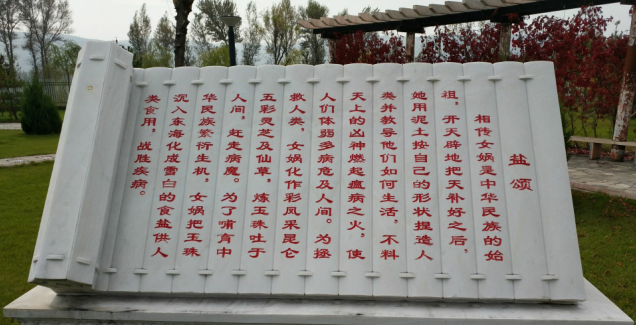 盐颂
相传女娲是中华民族的始
祖，开天辟地把天补好之后，
她用泥土按自己的形状捏造人
类并教导他们如何生活，不料
天上的凶神燃起瘟病之火，使
人们体弱多病危及人间。为拯
救人类，女娲化作彩凤采昆仑
五彩灵芝及仙草，炼玉珠吐于
人间，赶走病魔。为了哺育中
华民族繁衍生机，女娲把玉珠
沉入东海化成雪白的食盐供人
类食用，战胜疾病。